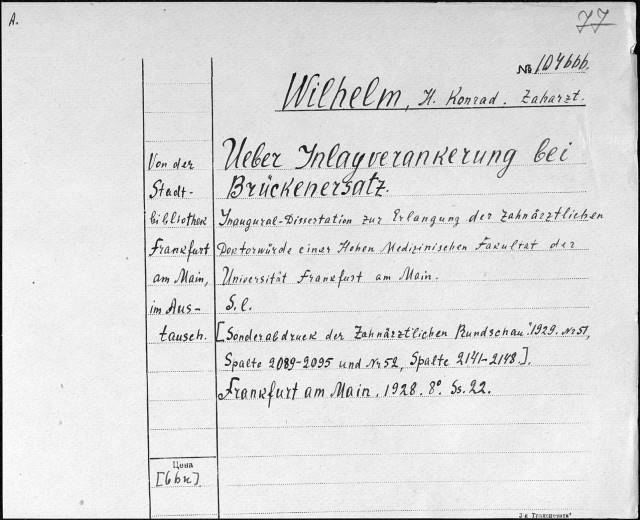 A.
77
№ 104666.
Wilhelm, H. Konrad. Zaharzt.
Ueber Inlayverankerung bei
Brückenersatz.
Inaugural-Dissertation zur Erlangung der zahnärztlichen
Doktorwürde einer Hohen Medizinischen Fakultät der
Universität Frankfurt am Main.
S.l.
[Sonderabdruck der Zahnärztlichen Rundschau". 1929. Nr 51,
Spalte 2089-2095 und Nr 52, Spalte 2141-2148.].
Frankfurt am Main. 1928. 8°. Ss. 22.
Von der
Stadt-
bibliothek
Frankfurt
am Main,
im Aus-
tausch.
Цена